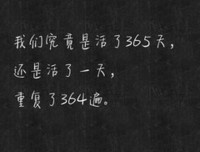 我们究竟是活了365天，
还是活了一天，
重复了364遍。